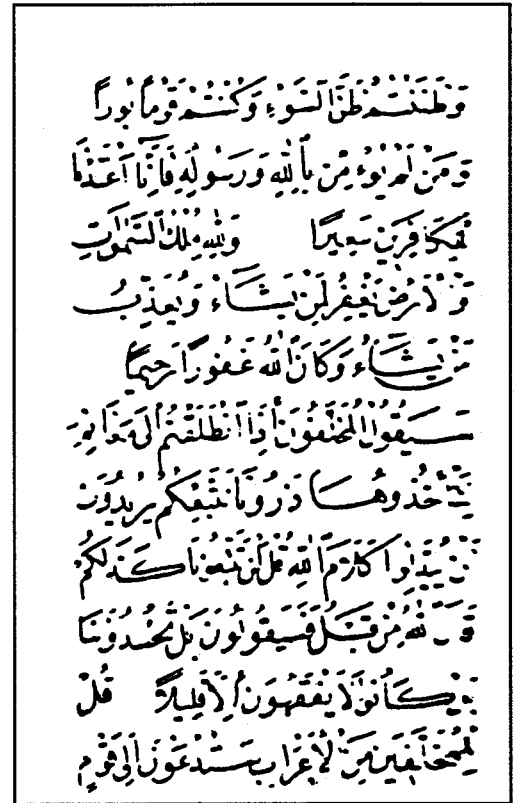 وَظَنَنْتُمْ ظَنَّ السَّوْءِ وَكُنْتُمْ قَوْمًا بُورًا
وَمَنْ لَمْ يُؤْمِنْ بِاللَّهِ وَرَسُولِهِ فَإِنَّا أَعْتَدْنَا
لِلْكَافِرِينَ سَعِيرًا وَلِلَّهِ مُلْكُ السَّمَوَاتِ
وَالْأَرْضِ يَغْفِرُ لِمَنْ يَشَاءُ وَيُعَذِّبُ
مَنْ يَشَاءُ وَكَانَ اللَّهُ غَفُورًا رَحِيمًا
سَيَقُولُ الْمُخَلَّفُونَ إِذَا انْطَلَقْتُمْ إِلَى مَغَانِمَ
لِتَأْخُذُوهَا ذَرُونَا نَتَّبِعْكُمْ يُرِيدُونَ
أَنْ يُبَدِّلُوا كَلَامَ اللَّهِ قُلْ لَنْ تَتَّبِعُونَا كَذَلِكُمْ
قَالَ اللَّهُ مِنْ قَبْلُ فَسَيَقُولُونَ بَلْ تَحْسُدُونَنَا
بَلْ كَانُوا لَا يَفْقَهُونَ إِلَّا قَلِيلًا قُلْ
لِلْمُخَلَّفِينَ مِنَ الْأَعْرَابِ سَتُدْعَوْنَ إِلَى قَوْمٍ